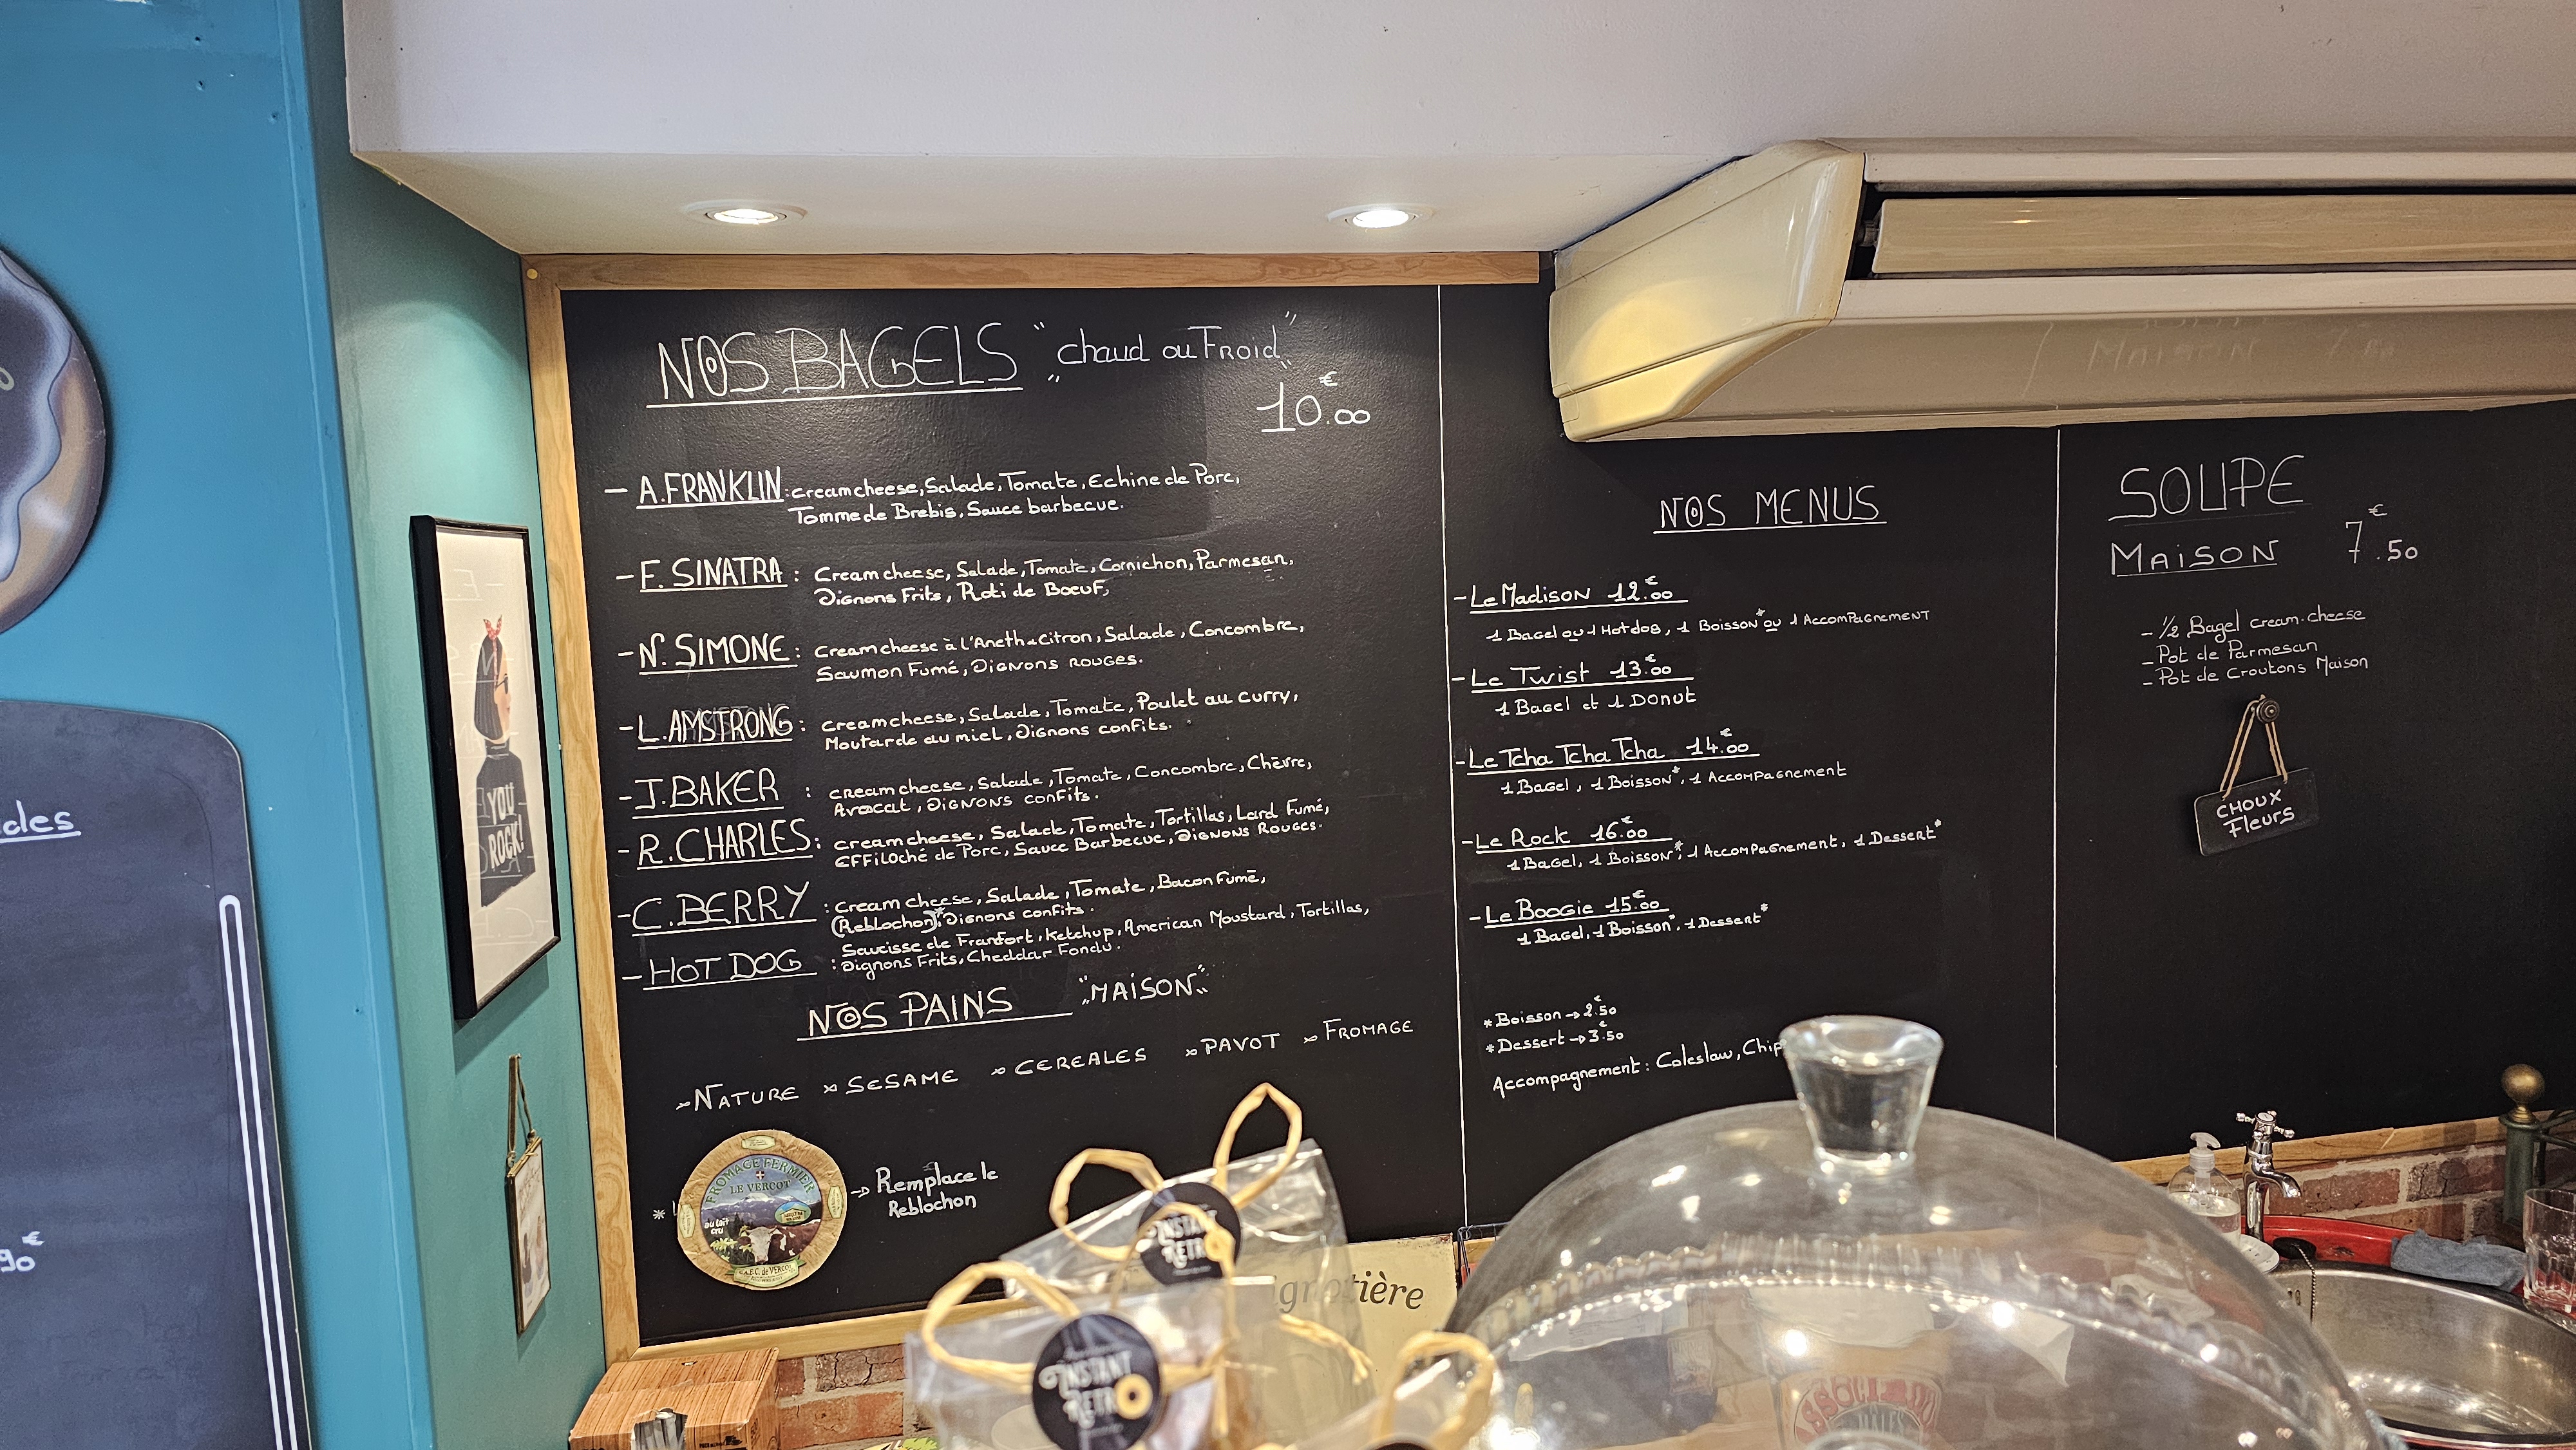 NOS BAGELS "chaud ou Froid"
10.00€
- A.FRANKLIN : creamcheese, Salade, Tomate, Echine de Porc,
Tomme de Brebis, Sauce barbecue.
- F. SINATRA : Cream cheese, Salade, Tomate, Cornichon, Parmesan,
Oignons Frits, Roti de Boeuf,
- N. SIMONE : Creamcheese à l'Aneth & Citron, Salade, Concombre,
Saumon Fumé, Oignons rouges.
- L.AMSTRONG : creamcheese, Salade, Tomate, Poulet au curry,
Moutarde au miel, Oignons confits.
- J.BAKER : creamcheese, Salade, Tomate, Concombre, Chèvre,
Avocat, Oignons confits.
- R.CHARLES : creamcheese, Salade, Tomate, Tortillas, Lard Fumé,
Effiloché de Porc, Sauce Barbecue, Oignons Rouges.
- C.BERRY : Cream cheese, Salade, Tomate, Bacon Fumé,
(Reblochon)*, Oignons confits.
- HOT DOG : Saucisse de Franfort, Ketchup, American Moustard, Tortillas,
Oignons Frits, Cheddar Fondu.
NOS PAINS "MAISON"
NATURE SESAME CEREALES PAVOT FROMAGE
*
FROMAGE FERMIER
LE VERCOT
au lait
cru
G.A.E.C. de VERCOT
→ Remplace le
Reblochon
NOS MENUS
- Le Madison 12.00€
1 Bagel ou 1 Hotdog, 1 Boisson* ou 1 Accompagnement
- Le Twist 13.00€
1 Bagel et 1 Donut
- Le Tcha Tcha Tcha 14.00€
1 Bagel, 1 Boisson*, 1 Accompagnement
- Le Rock 16.00€
1 Bagel, 1 Boisson*, 1 Accompagnement, 1 Dessert*
- Le Boogie 15.00€
1 Bagel, 1 Boisson*, 1 Dessert*
* Boisson → 2.50€
* Dessert → 3.50€
Accompagnement : Coleslaw, Chip
SOUPE
MAISON 7.50€
- 1/2 Bagel cream-cheese
- Pot de Parmesan
- Pot de Croutons Maison
CHOUX
Fleurs
YOU
ROCK!
des
90€
INSTANT
RETRO
INSTANT
RETRO
ière